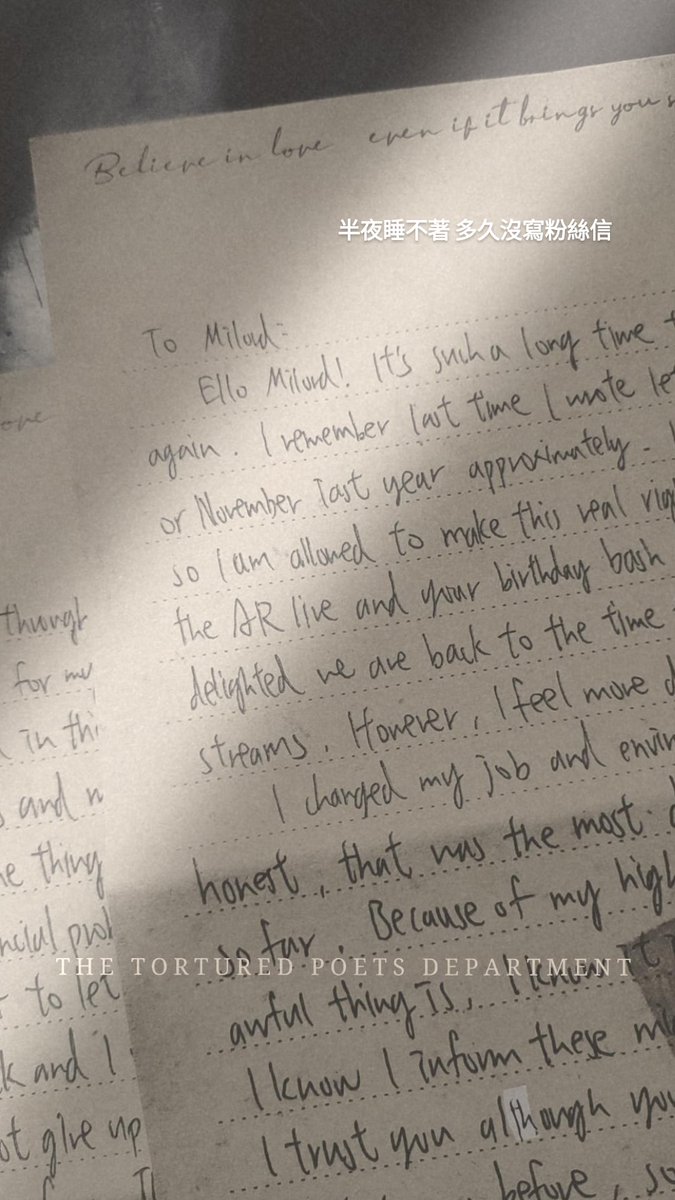 Believe in love even if it brings you
半夜睡不著 多久沒寫粉絲信
To Milord:
Ello Milord! It's such a long time
again. I remember last time I wrote let
or November last year approximately. I
so I am allowed to make this real rig
the AR live and your birthday bash
delighted we are back to the time
streams. However, I feel more d
I changed my job and envir
honest, that was the most
so far. Because of my high
THE TORTURED POETS DEPARTMENT
awful thing is, I know it
I know I inform these
I trust you although you
before, so
ove
though
for my
in thi
s and
e thing
ncial prob
to let
k and I
ot give up